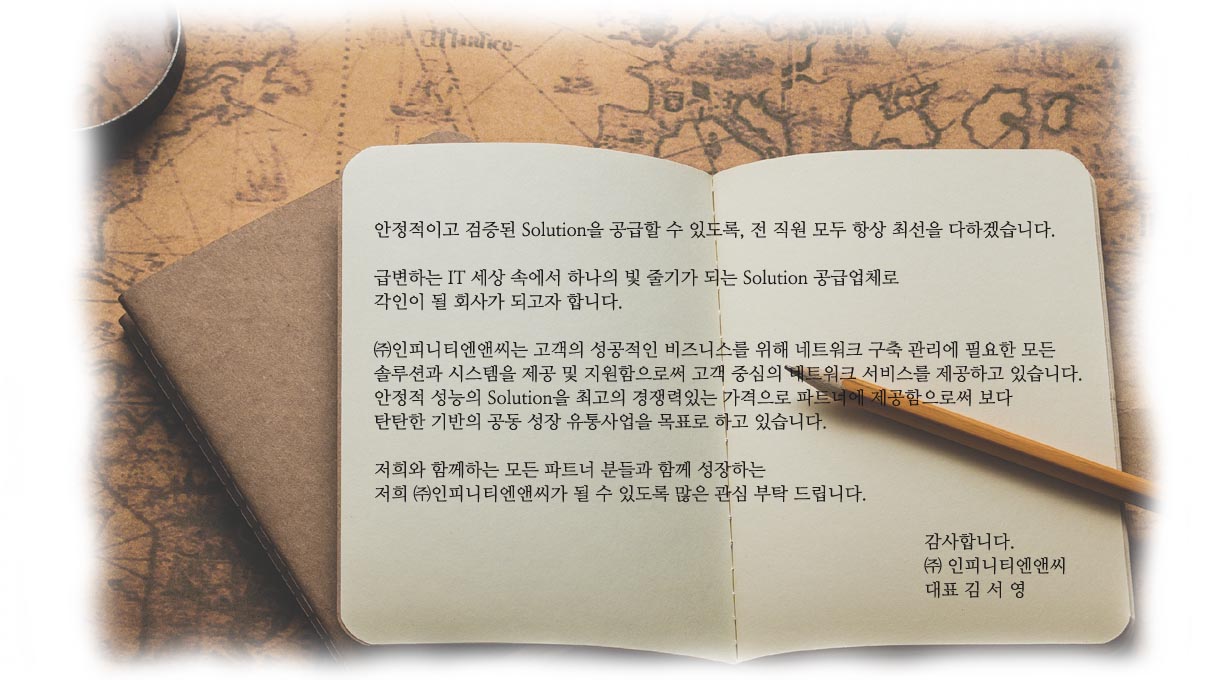 안정적이고 검증된 Solution을 공급할 수 있도록, 전 직원 모두 항상 최선을 다하겠습니다.
급변하는 IT 세상 속에서 하나의 빛 줄기가 되는 Solution 공급업체로
각인이 될 회사가 되고자 합니다.
㈜인피니티엔앤씨는 고객의 성공적인 비즈니스를 위해 네트워크 구축 관리에 필요한 모든
솔루션과 시스템을 제공 및 지원함으로써 고객 중심의 네트워크 서비스를 제공하고 있습니다.
안정적 성능의 Solution을 최고의 경쟁력있는 가격으로 파트너에 제공함으로써 보다
탄탄한 기반의 공동 성장 유통사업을 목표로 하고 있습니다.
저희와 함께하는 모든 파트너 분들과 함께 성장하는
저희 ㈜인피니티엔앤씨가 될 수 있도록 많은 관심 부탁 드립니다.
감사합니다.
㈜ 인피니티엔앤씨
대표 김 서 영